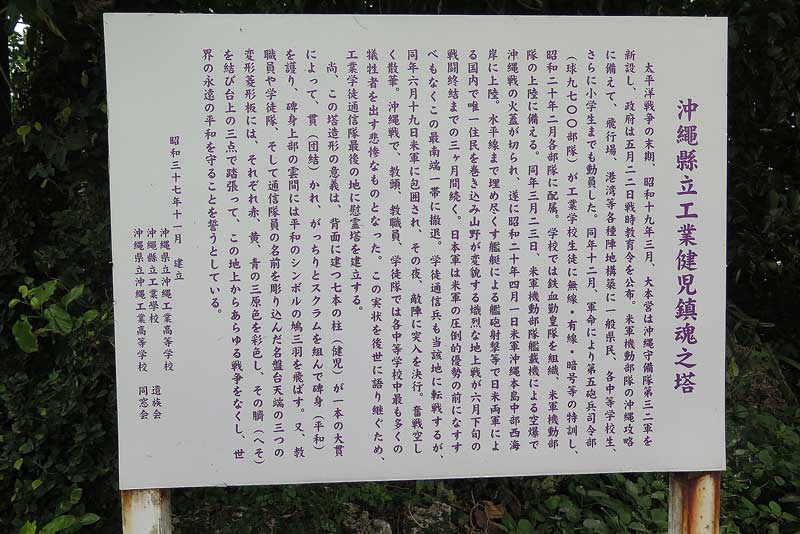 沖繩縣立工業健児鎮魂之塔
太平洋戦争の末期、昭和十九年三月、大本営は沖縄守備隊第三二軍を
新設し、政府は五月二二日戦時教育令を公布。米軍機動部隊の沖縄攻略
に備えて、飛行場、港湾等各種陣地構築に一般県民、各中等学校生、
さらに小学生までも動員した。同年十二月、軍命により第五砲兵司令部
(球九七〇〇部隊)が工業学校生徒に無線・有線・暗号等の特訓し、
昭和二十年二月各部隊に配属。学校では鉄血勤皇隊を組織、米軍機動部
隊の上陸に備える。同年三月二三日、米軍機動部隊艦載機による空爆で
沖縄戦の火蓋が切られ、遂に昭和二十年四月一日米軍沖縄本島中部西海
岸に上陸。水平線まで埋め尽くす艦艇による艦砲射撃等で日米両軍によ
る国内で唯一住民を巻き込み山野が変貌する熾烈な地上戦が六月下旬の
戦闘終結までの三ヶ月間続く。日本軍は米軍の圧倒的優勢の前になすす
べもなくこの最南端一帯に撤退。学徒通信兵も当該地に転戦するが、
同年六月十九日米軍に包囲され、その夜、敵陣に突入を決行。奮戦空し
く散華。沖縄戦で、教頭、教職員、学徒隊では各中等学校中最も多くの
犠牲者を出す悲惨なものとなった。この実状を後世に語り継ぐため、
工業学徒通信隊最後の地に慰霊塔を建立する。
尚、この塔造形の意義は、背面に建つ七本の柱(健児)が一本の大貫
によって、貫(団結)かれ、がっちりとスクラムを組んで碑身(平和)
を護り、碑身上部の雲間には平和のシンボルの鳩三羽を飛ばす。又、教
職員や学徒隊、そして通信隊員の名前を彫り込んだ名盤台天端の三つの
変形菱形板には、それぞれ赤、黄、青の三原色を彩色し、その臍(へそ)
を結び台上の三点で踏張って、この地上からあらゆる戦争をなくし、世
界の永遠の平和を守ることを誓うとしている。
昭和三十七年十一月 建立
沖縄県立沖縄工業高等学校 遺族会
沖縄縣立工業學校
沖縄県立沖縄工業高等学校 同窓会